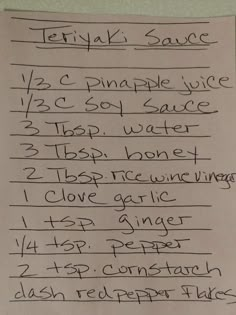 Teriyaki Sauce
1/3 C pinapple juice
1/3 C Soy Sauce
3 Tbsp. water
3 Tbsp. honey
2 Tbsp. rice wine vinegar
1 Clove garlic
1 tsp. ginger
1/4 tsp. pepper
2 tsp. cornstarch
dash red pepper flakes